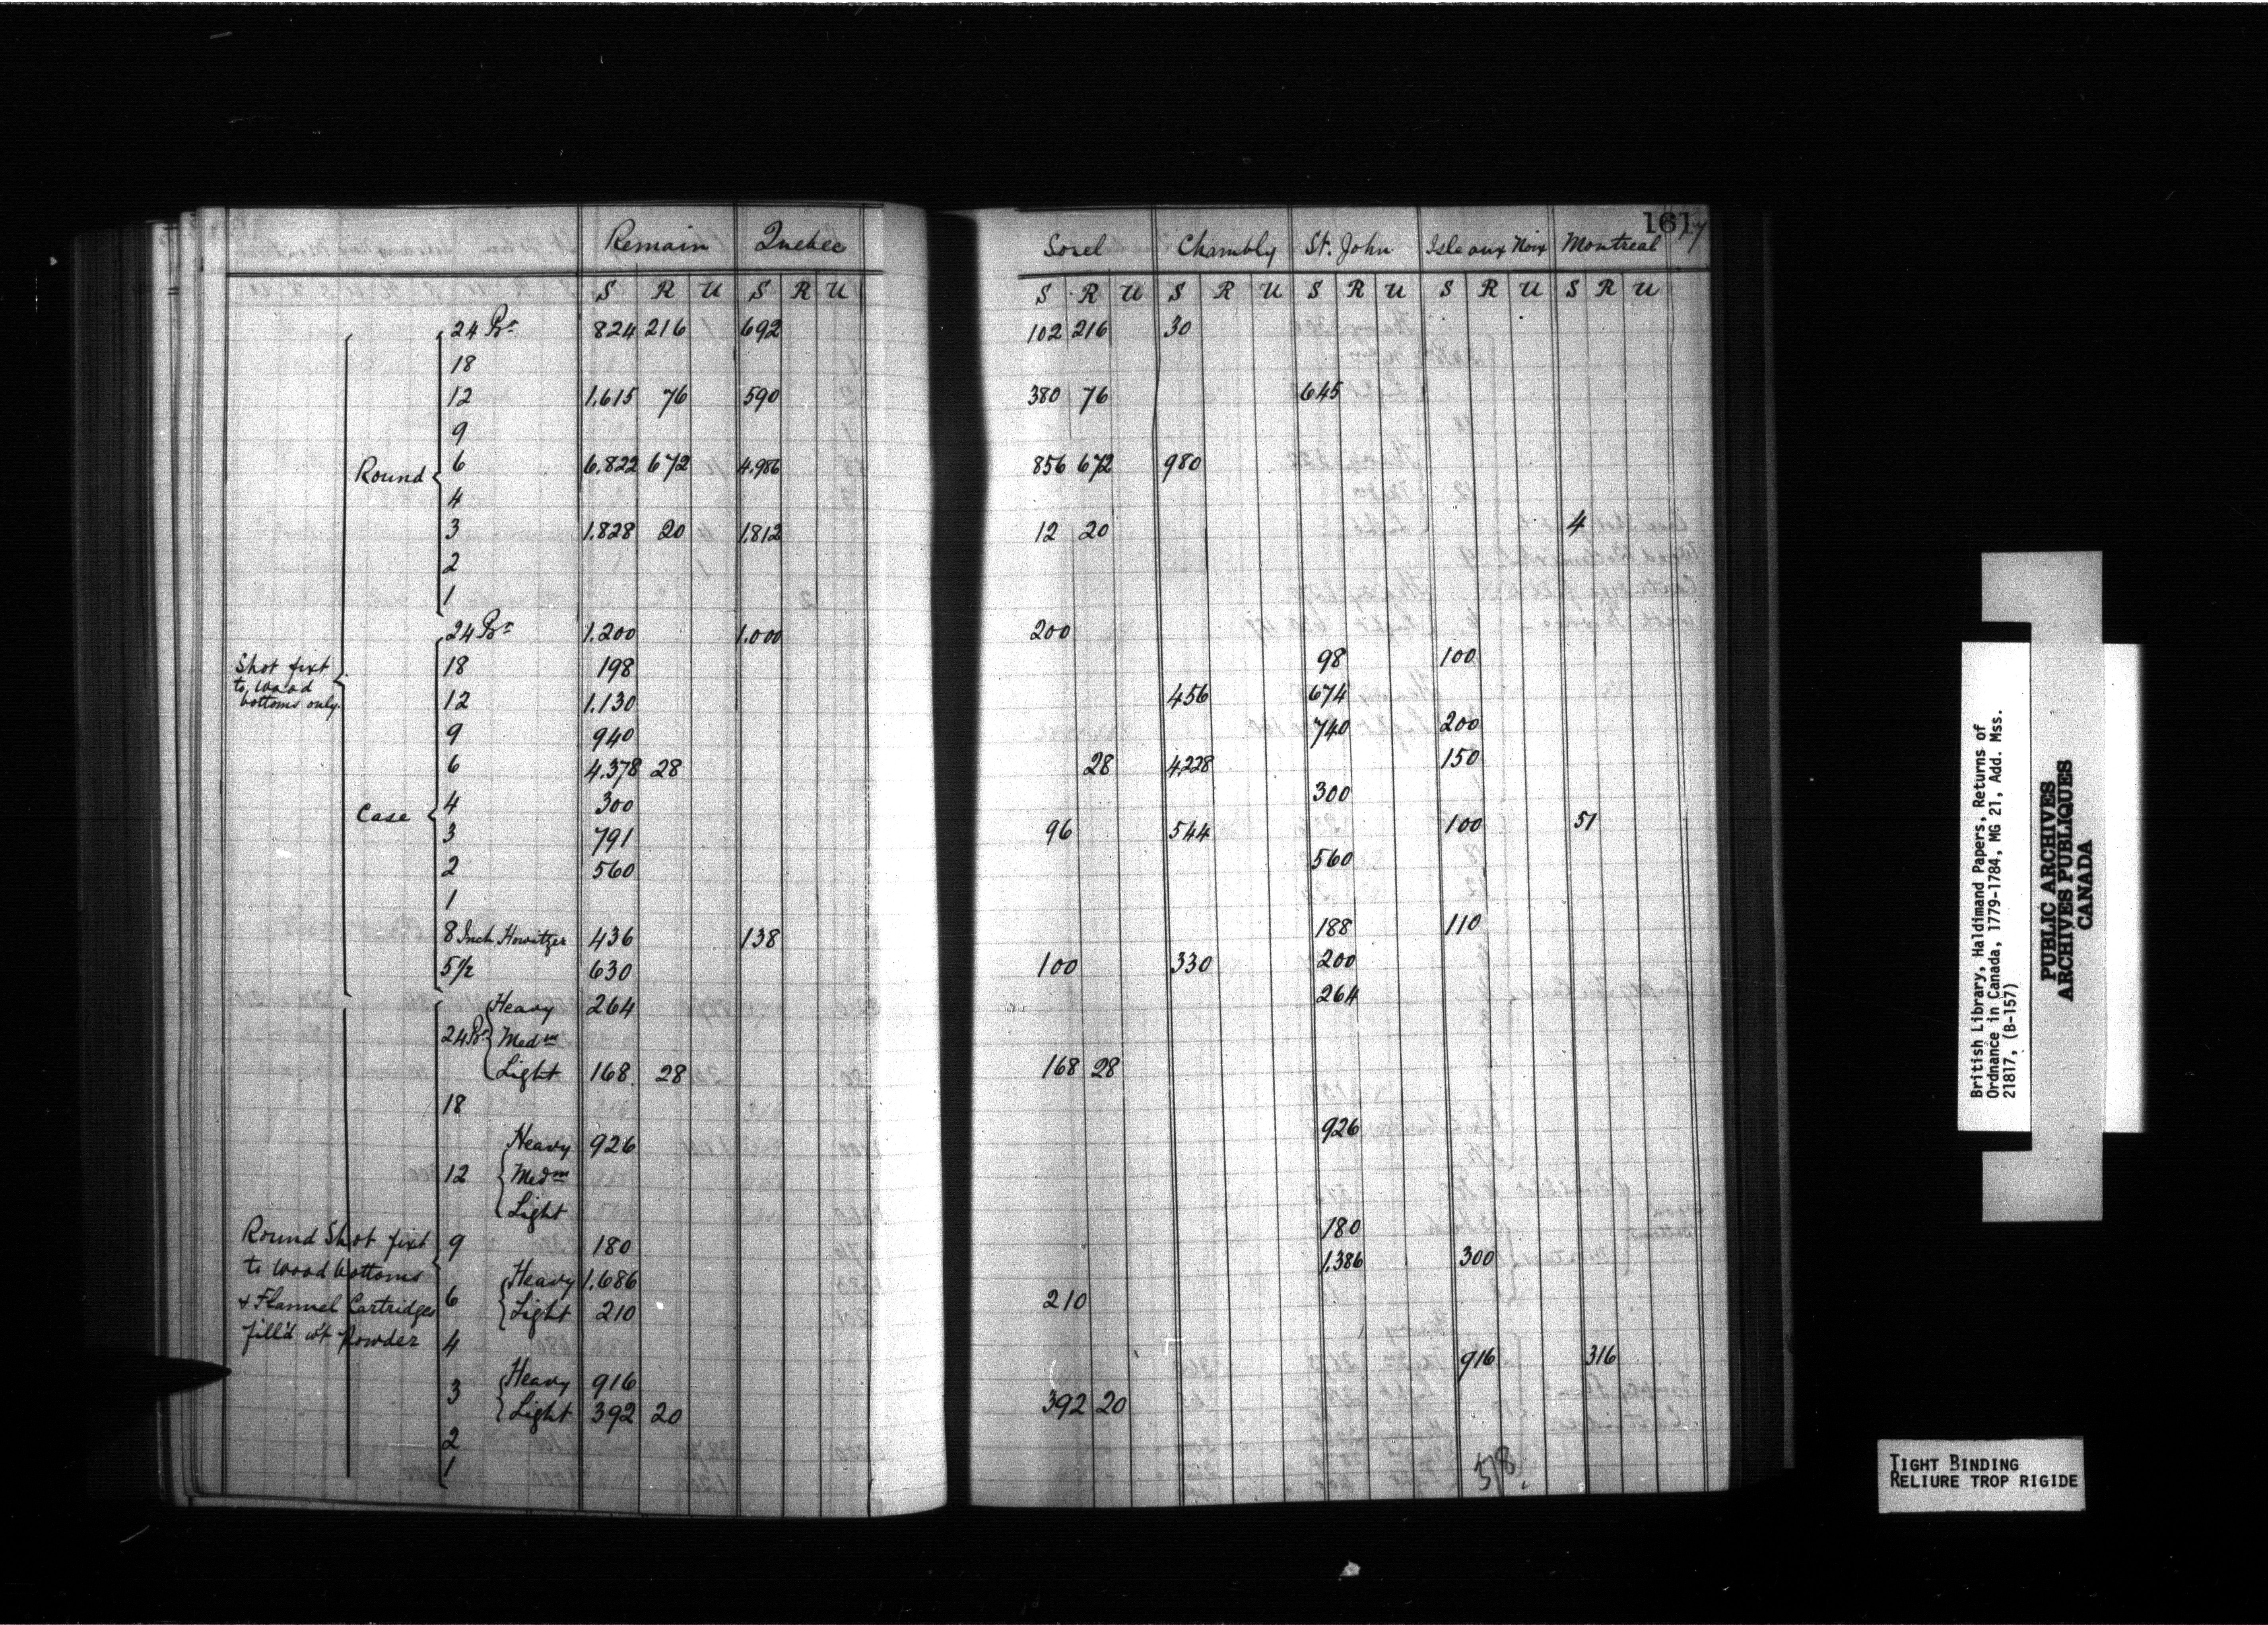 161 17
Remain Quebec Sorel Chambly St. John Isle aux Noix Montreal
S R U S R U S R U S R U S R U S R U S R U
Shot fixt to wood bottoms only.
Round
24 Pr 824 216 692 102 216 30
18
12 1.615 76 590 380 76 645
9
6 6.822 672 4.986 856 672 980
4
3 1.828 20 1.812 12 20 4
2
1
Case
24 Pr 1.200 1.000 200
18 198 98 100
12 1.130 456 674
9 940 740 200
6 4.378 28 28 4228 150
4 300 300
3 791 96 544 100 51
2 560 560
1
8 Inch Howitzer 436 138 188 110
5 1/2 630 100 330 200
Round Shot fixt
to wood bottoms
& Flannel Cartridges
fill'd wt powder
24 Pr Heavy 264 264
Medm
Light 168 28 168 28
18
12 Heavy 926 926
Medm
Light
9 180 180
6 Heavy 1.686 1.386 300
Light 210 210
4
3 Heavy 916 916 316
Light 392 20 392 20
2
1
58
British Library, Haldimand Papers, Returns of
Ordnance in Canada, 1779-1784, MG 21, Add. Mss.
21817, (B-157)
PUBLIC ARCHIVES
ARCHIVES PUBLIQUES
CANADA
TIGHT BINDING
RELIURE TROP RIGIDE